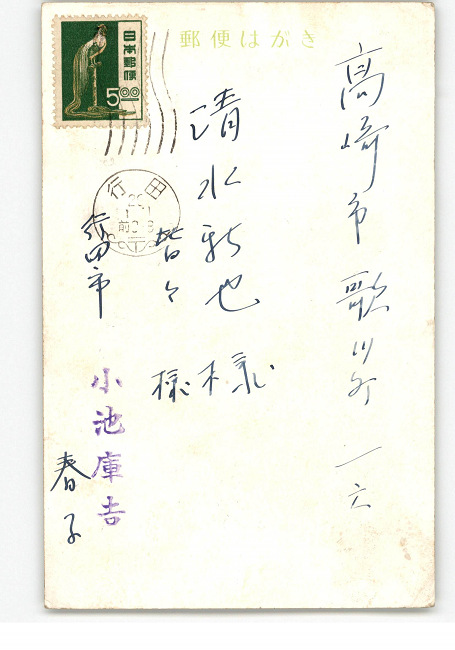 郵便はがき
日本郵便
5.00
行田
前0-8
高崎市歌川町一六
清水新也様
皆々様
行田市
小池庫吉
春子